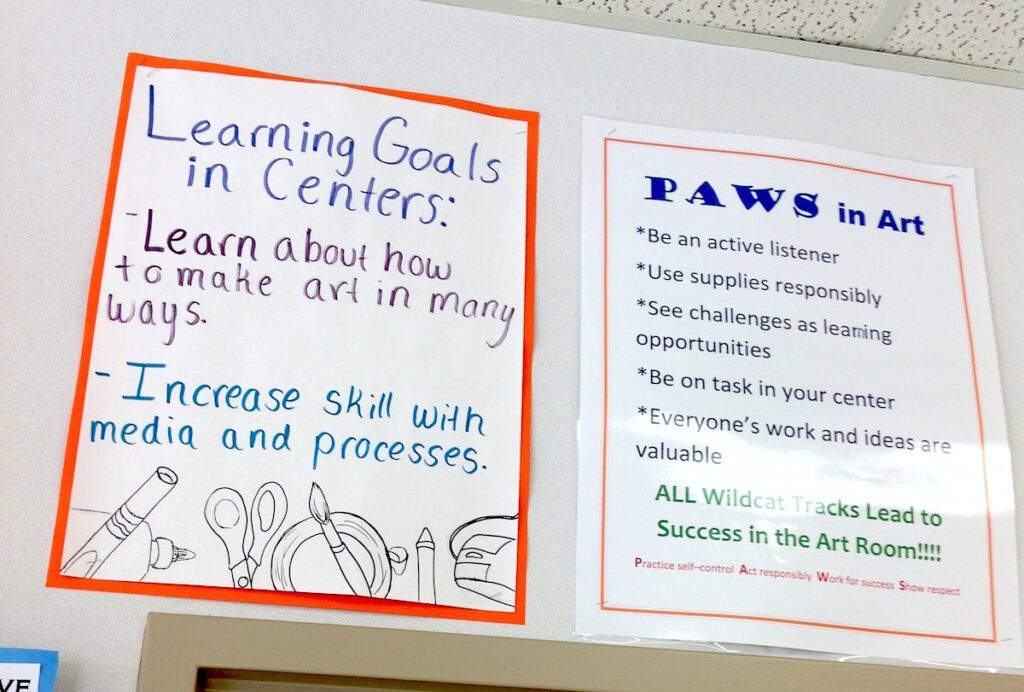 Learning Goals
in Centers:
-Learn about how
to make art in many
ways.
- Increase skill with
media and processes.
PAWS in Art
*Be an active listener
*Use supplies responsibly
*See challenges as learning
opportunities
*Be on task in your center
*Everyone's work and ideas are
valuable
ALL Wildcat Tracks Lead to
Success in the Art Room!!!!
Practice self-control Act responsibly Work for success Show respect